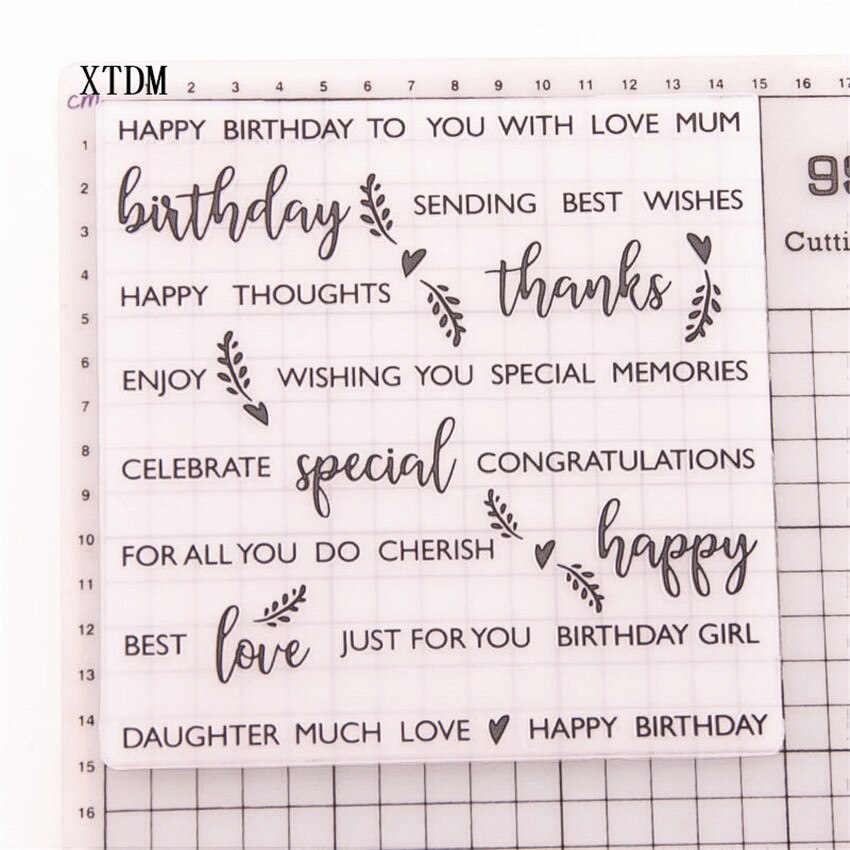 XTDM
cm 2 3 4 5 6 7 8 9 10 11 12 13 14 15 16
HAPPY BIRTHDAY TO YOU WITH LOVE MUM
birthday SENDING BEST WISHES
HAPPY THOUGHTS thanks
ENJOY WISHING YOU SPECIAL MEMORIES
CELEBRATE special CONGRATULATIONS
FOR ALL YOU DO CHERISH happy
BEST love JUST FOR YOU BIRTHDAY GIRL
DAUGHTER MUCH LOVE HAPPY BIRTHDAY
1
2
3
4
5
6
7
8
9
10
11
12
13
14
15
16
Cutti